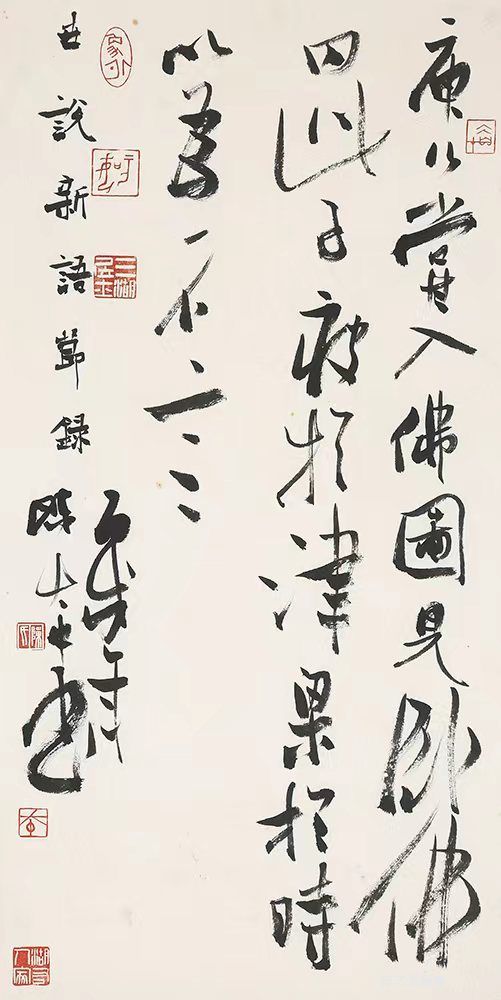 庾公嘗入佛圖見臥佛
曰此子疲於津梁於時
以為名言
世說新語節錄
陳大中書